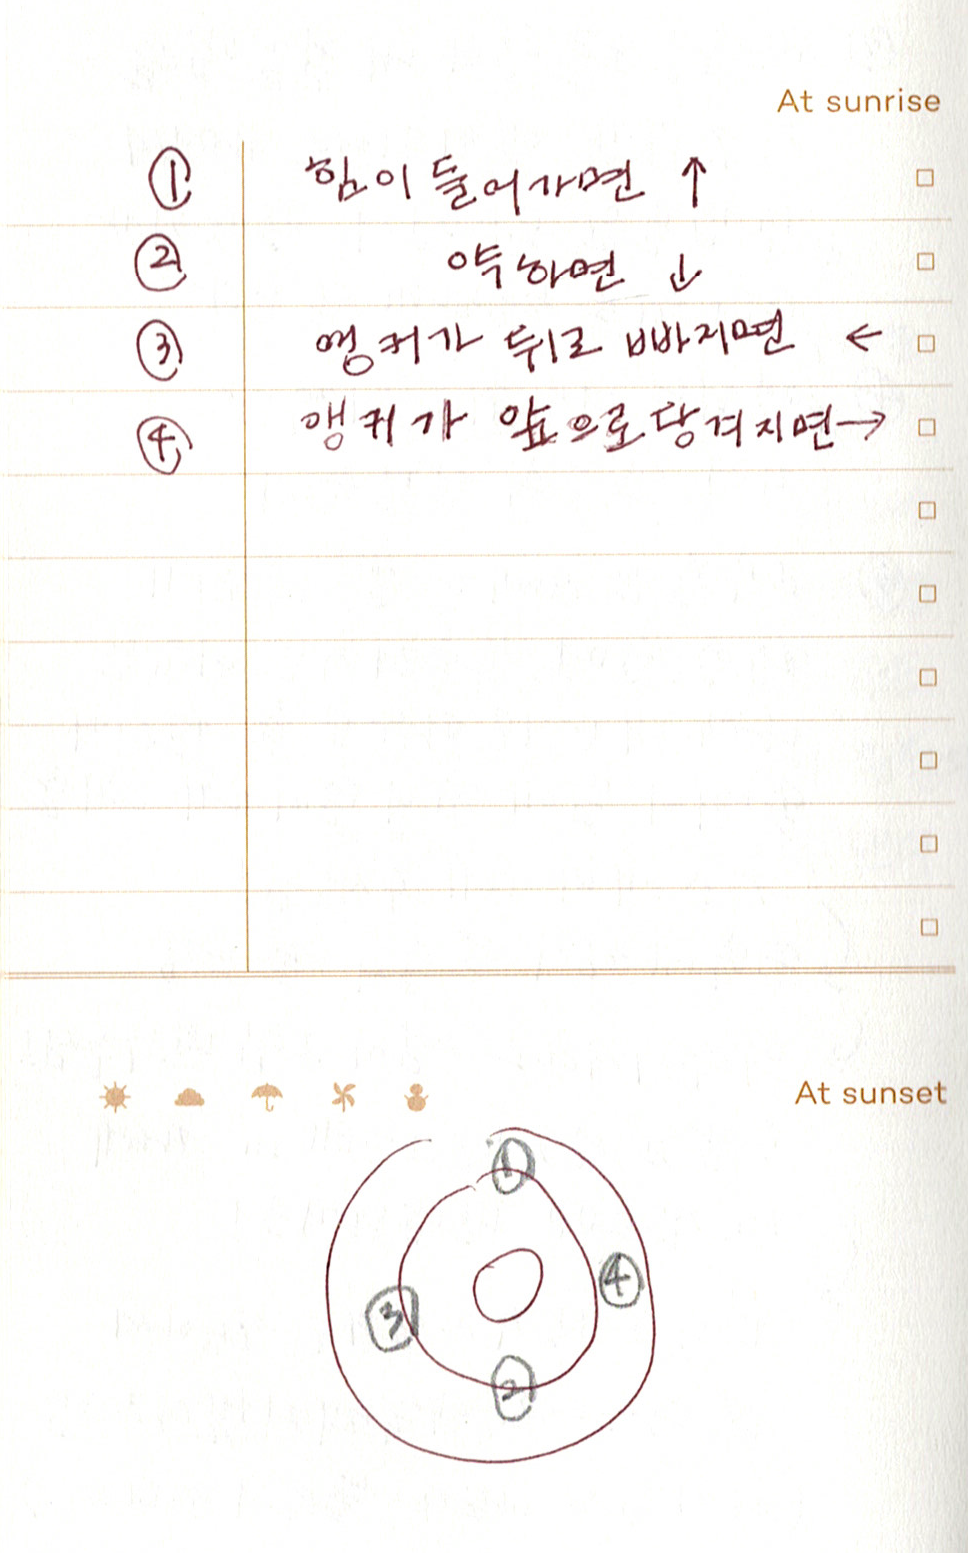 At sunrise
① 힘이 들어가면 ↑
② 약하면 ↓
③ 앵커가 뒤로 빠지면 ←
④ 앵커가 앞으로 당겨지면 →
At sunset
①
④
③
②